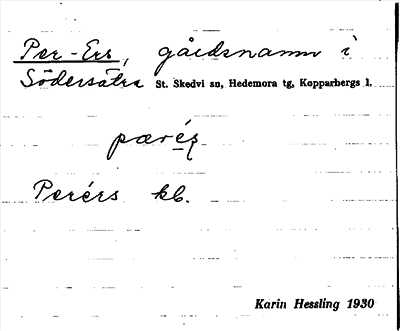 Per-Ers, gårdsnamn i
Södersätra St. Skedvi sn, Hedemora tg, Kopparbergs l.
Perérs kb.
Karin Hessling 1930